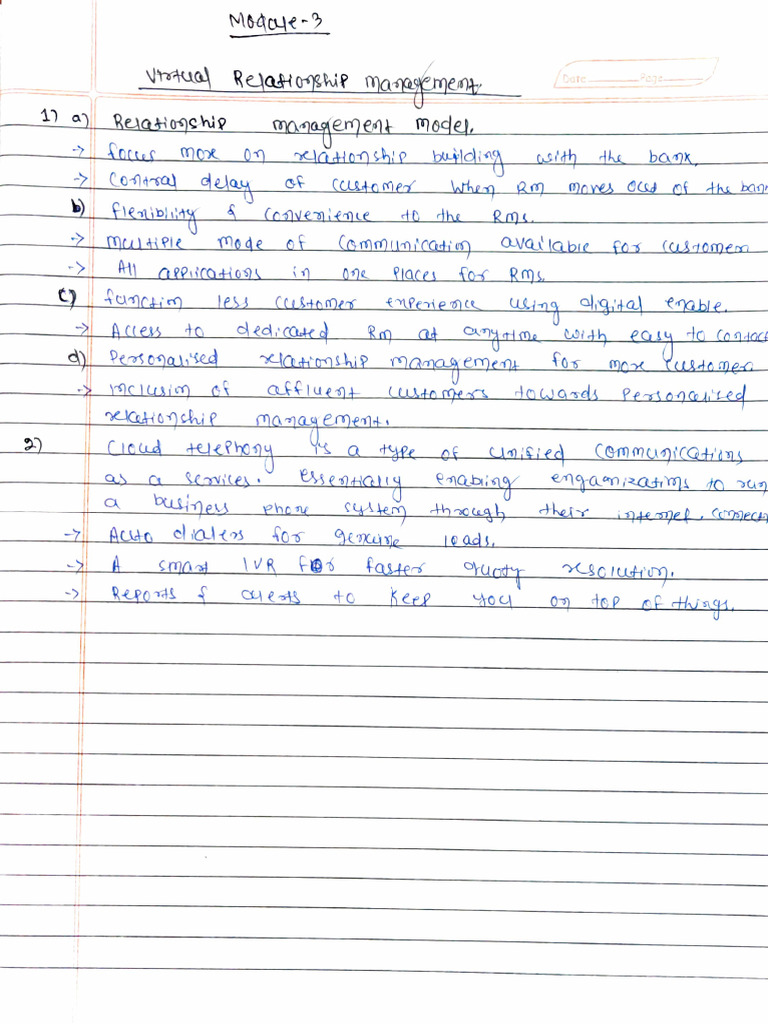 Module-3
Date Page
Virtual Relationship management.
1) a) Relationship management model.
-> focus more on relationship building with the bank.
-> Control delay of customer when RM moves out of the bank
b) flenibility & convenience to the RMs.
-> multiple mode of communication available for customer
-> All applications in one places for RMs.
c) function less customer experience using digital enable.
-> Access to dedicated RM at anytime with easy to contact
d) Personalised relationship management for more customer
-> inclusion of affluent customers towards personalised
relationship management.
2) Cloud telephony is a type of unified communications
as a services. essentially enabling to run
a business phone system through their internet connecti
-> Auto dialers for genuine leads.
-> A smart IVR for faster resolution.
-> Reports & alerts to keep you on top of things.